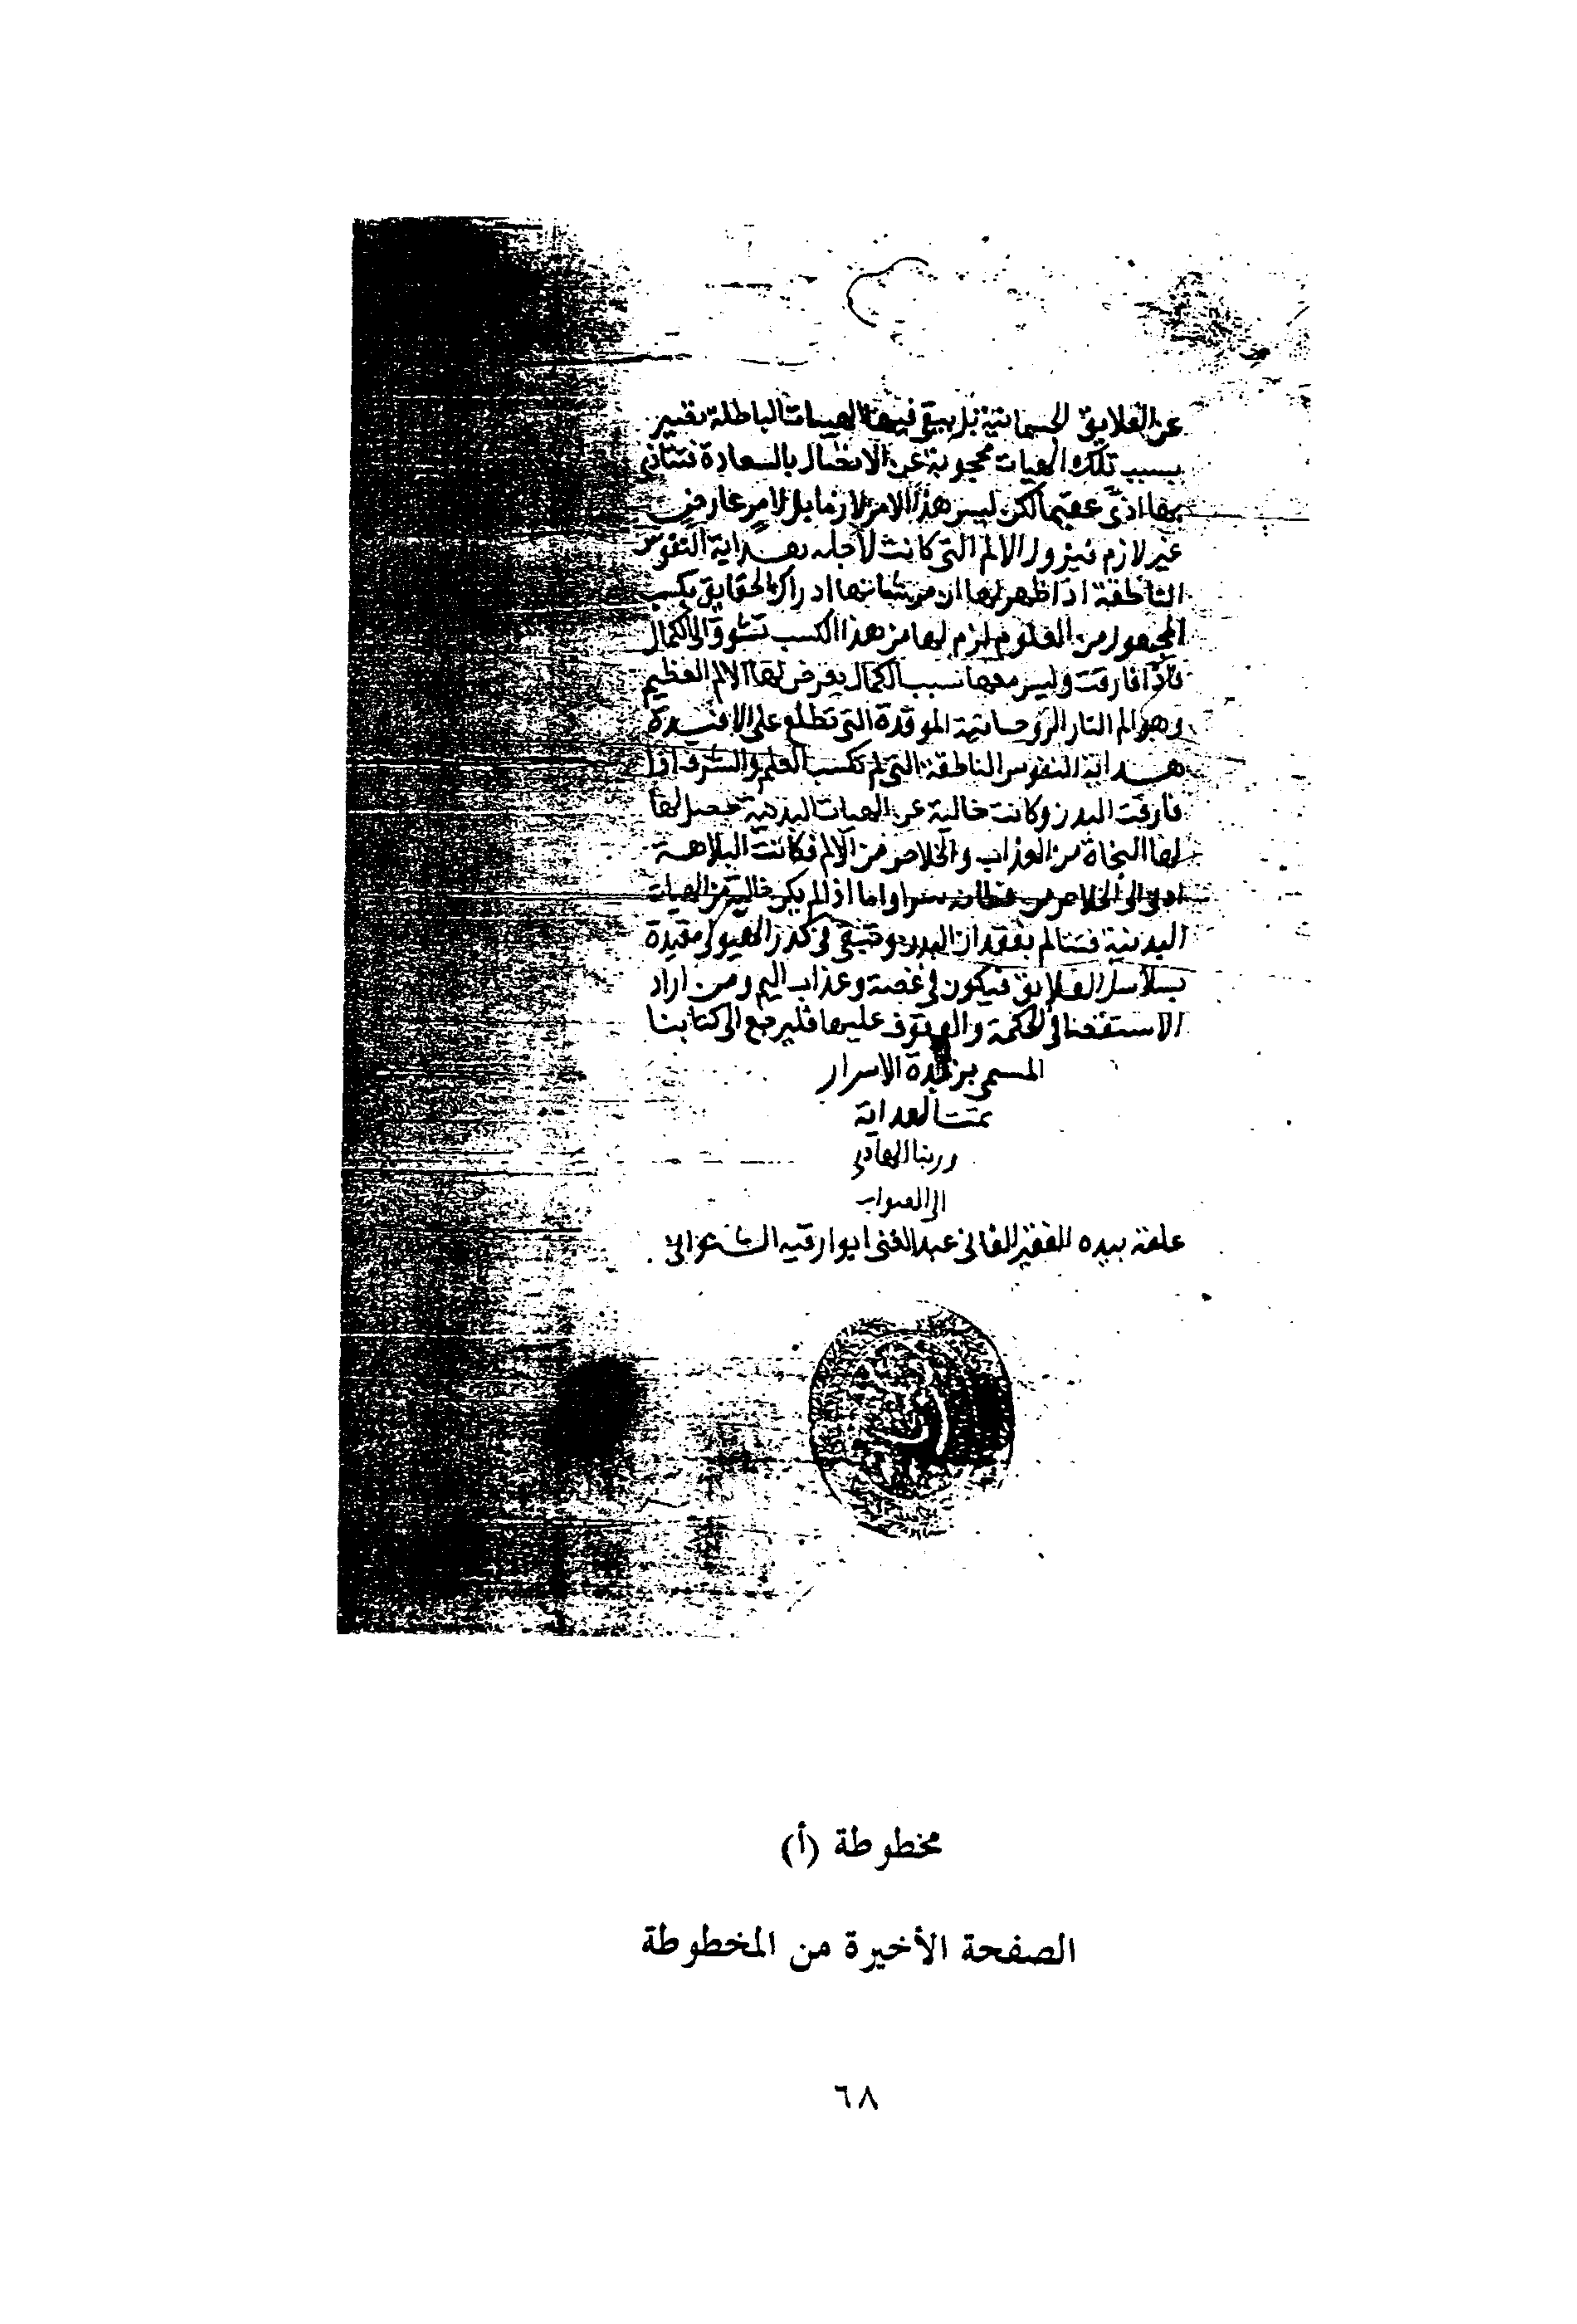 عن العلايق الجسمانية بل يبقى فيها الهيات الباطلة تصير
بسبب تلك الهيات محجوبة عن الاتصال بالسعادة فتتاذى
بها اذى عظيما لكن ليس هذا الامر لازما بل لامر عارض
غير لازم فيزول الالم التى كانت لاجله هداية النفوس
الناطقة اذا ظهر لها ان من شانها ادراك الحقايق بكسب
المجهول من المعلوم لزم لها من هذا الكسب تشوق الى الكمال
فاذا فارقت وليس معها سبب الكمال يعرض لها الالم العظيم
وهو الم النار الروحانية الموقدة التى تطلع على الافيدة
هداية النفوس الناطقة التى لم تكسب العلم والشرف اذا
فارقت البدن وكانت خالية عن الهيات البدنية حصل لها
لها النجاة من العذاب والخلاص من الالم فكانت البلاهة
ادنى الى الخلاص من فطانة بترا واما اذا لم يكن خالية من الهيات
البدنية فتتالم بفقدان البدن وتبقى فى كدر الهيولى مقيدة
بسلاسل العلايق فيكون فى غصة وعذاب اليم ومن اراد
الاستقصا فى الحكمة والوقوف عليها فليرجع الى كتابنا
المسمى بزبدة الاسرار
تمت الهداية
وربنا الهادى
الى الصواب
علقه بيده الفقير الفانى عبد الغنى ابوا رقيه
مخطوطة (أ)
الصفحة الأخيرة من المخطوطة
٦٨